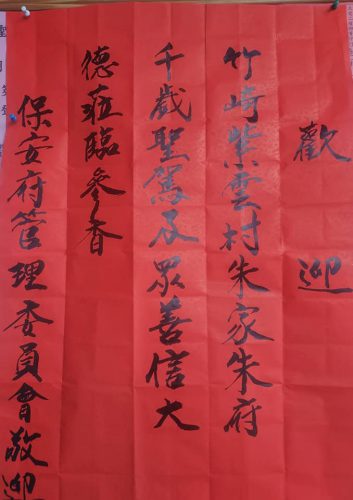 歡迎
竹崎紫雲村朱家朱府
千歲聖駕及眾善信大
德蒞臨參香
保安府管理委員會敬迎